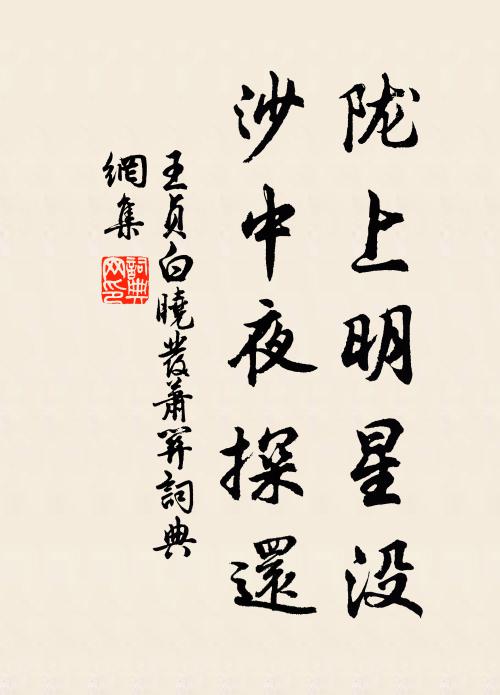 陇上明星没
沙中夜探還
王貞白曉發蕭關詞典
網集
詞典網印